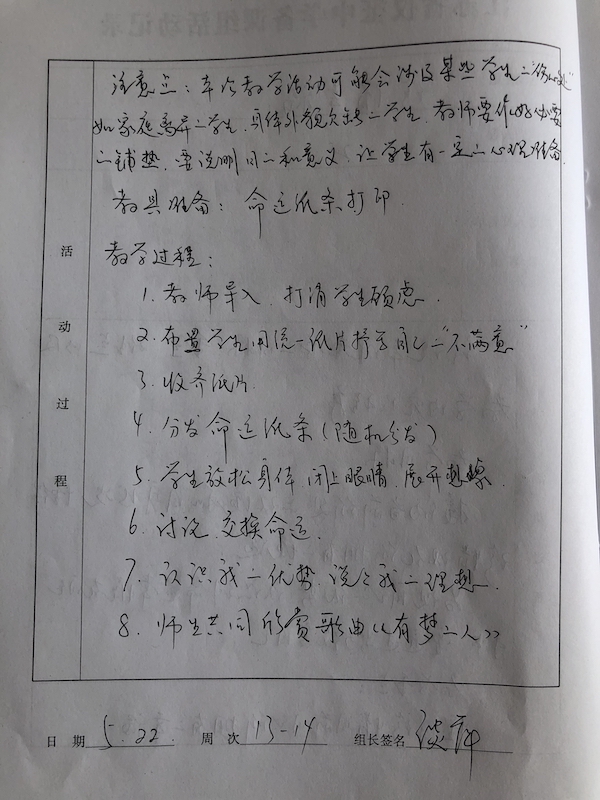 注意点：本次教学活动可能会涉及某些学生的“伤心处”
如家庭离异的学生，身体外貌欠缺的学生，教师要作好必要
的铺垫，要说明目的和意义，让学生有一定的心理准备。
教具准备：命运纸条打印.
教学过程：
1. 教师导入，打消学生顾虑.
2. 布置学生用统一纸片抒写自己的“不满意”
3. 收齐纸片
4. 分发命运纸条（随机分发）
5. 学生放松身体，闭上眼睛，展开想象.
6. 讨论，交换命运.
7. 认识我的优势，说说我的理想.
8. 师生共同欣赏歌曲《有梦的人》
活动过程
日期 5.22. 周次 13-14 组长签名